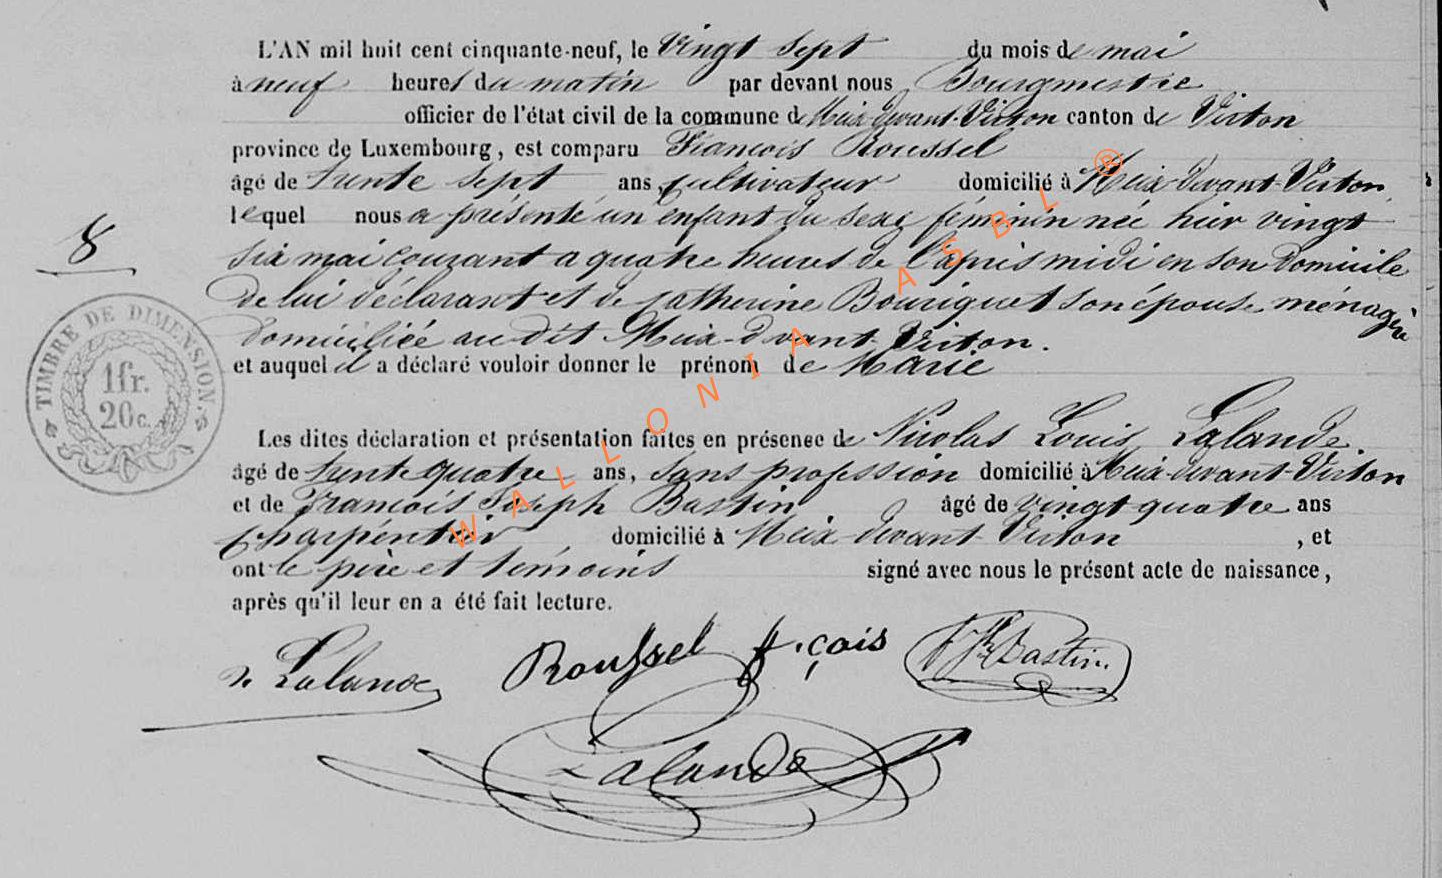 L'AN mil huit cent cinquante-neuf, le vingt sept du mois de mai
à neuf heures du matin par devant nous Bourgmestre
officier de l'état civil de la commune de Meix-devant-Virton canton de Virton
province de Luxembourg, est comparu François Roussel
âgé de trente sept ans, cultivateur domicilié à Meix-devant-Virton
lequel nous a présenté un enfant du sexe féminin née hier vingt
six mai courant a quatre heures de l'après midi en son domicile
8
de lui déclarant et de Catherine Bouriguet son épouse ménagère
domiciliée au dit Meix-devant-Virton.
et auquel il a déclaré vouloir donner le prénom de Marie
TIMBRE DE DIMENSION.
1fr.
20c.
Les dites déclaration et présentation faites en présence de Nicolas Louis Lalande
âgé de trente quatre ans, sans profession domicilié à Meix-devant-Virton
et de François Joseph Bastin âgé de vingt quatre ans
charpentier domicilié à Meix devant Virton, et
ont le père et témoins signé avec nous le présent acte de naissance,
après qu'il leur en a été fait lecture.
n. Lalande Roussel fçois Bastin.
Lalande
WALLONIA ASBL ®